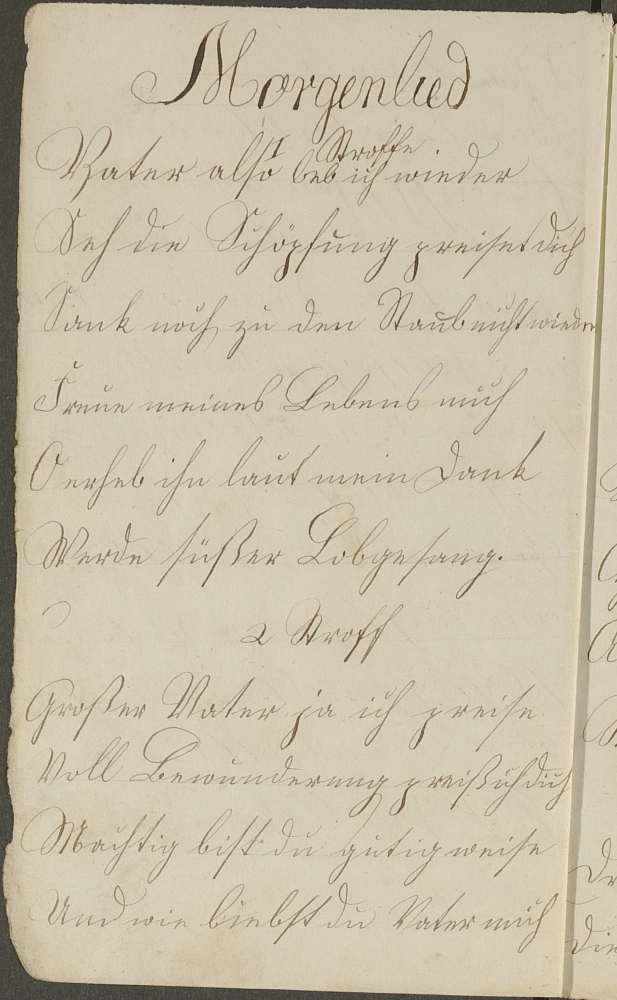 Morgenlied
1 Stroffe
Vater also leb ich wieder
Seh die Schöpfung preiset dich
Sank noch zu den Staub nicht wieder
Freue meines Lebens mich
O erheb ihn laut mein Dank
Werde süßer Lobgesang.
2 Stroff
Großer Vater ja ich preise
Voll Bewunderung preiß ich dich
Machtig bist du gutig weise
Und wie liebst du Vater mich